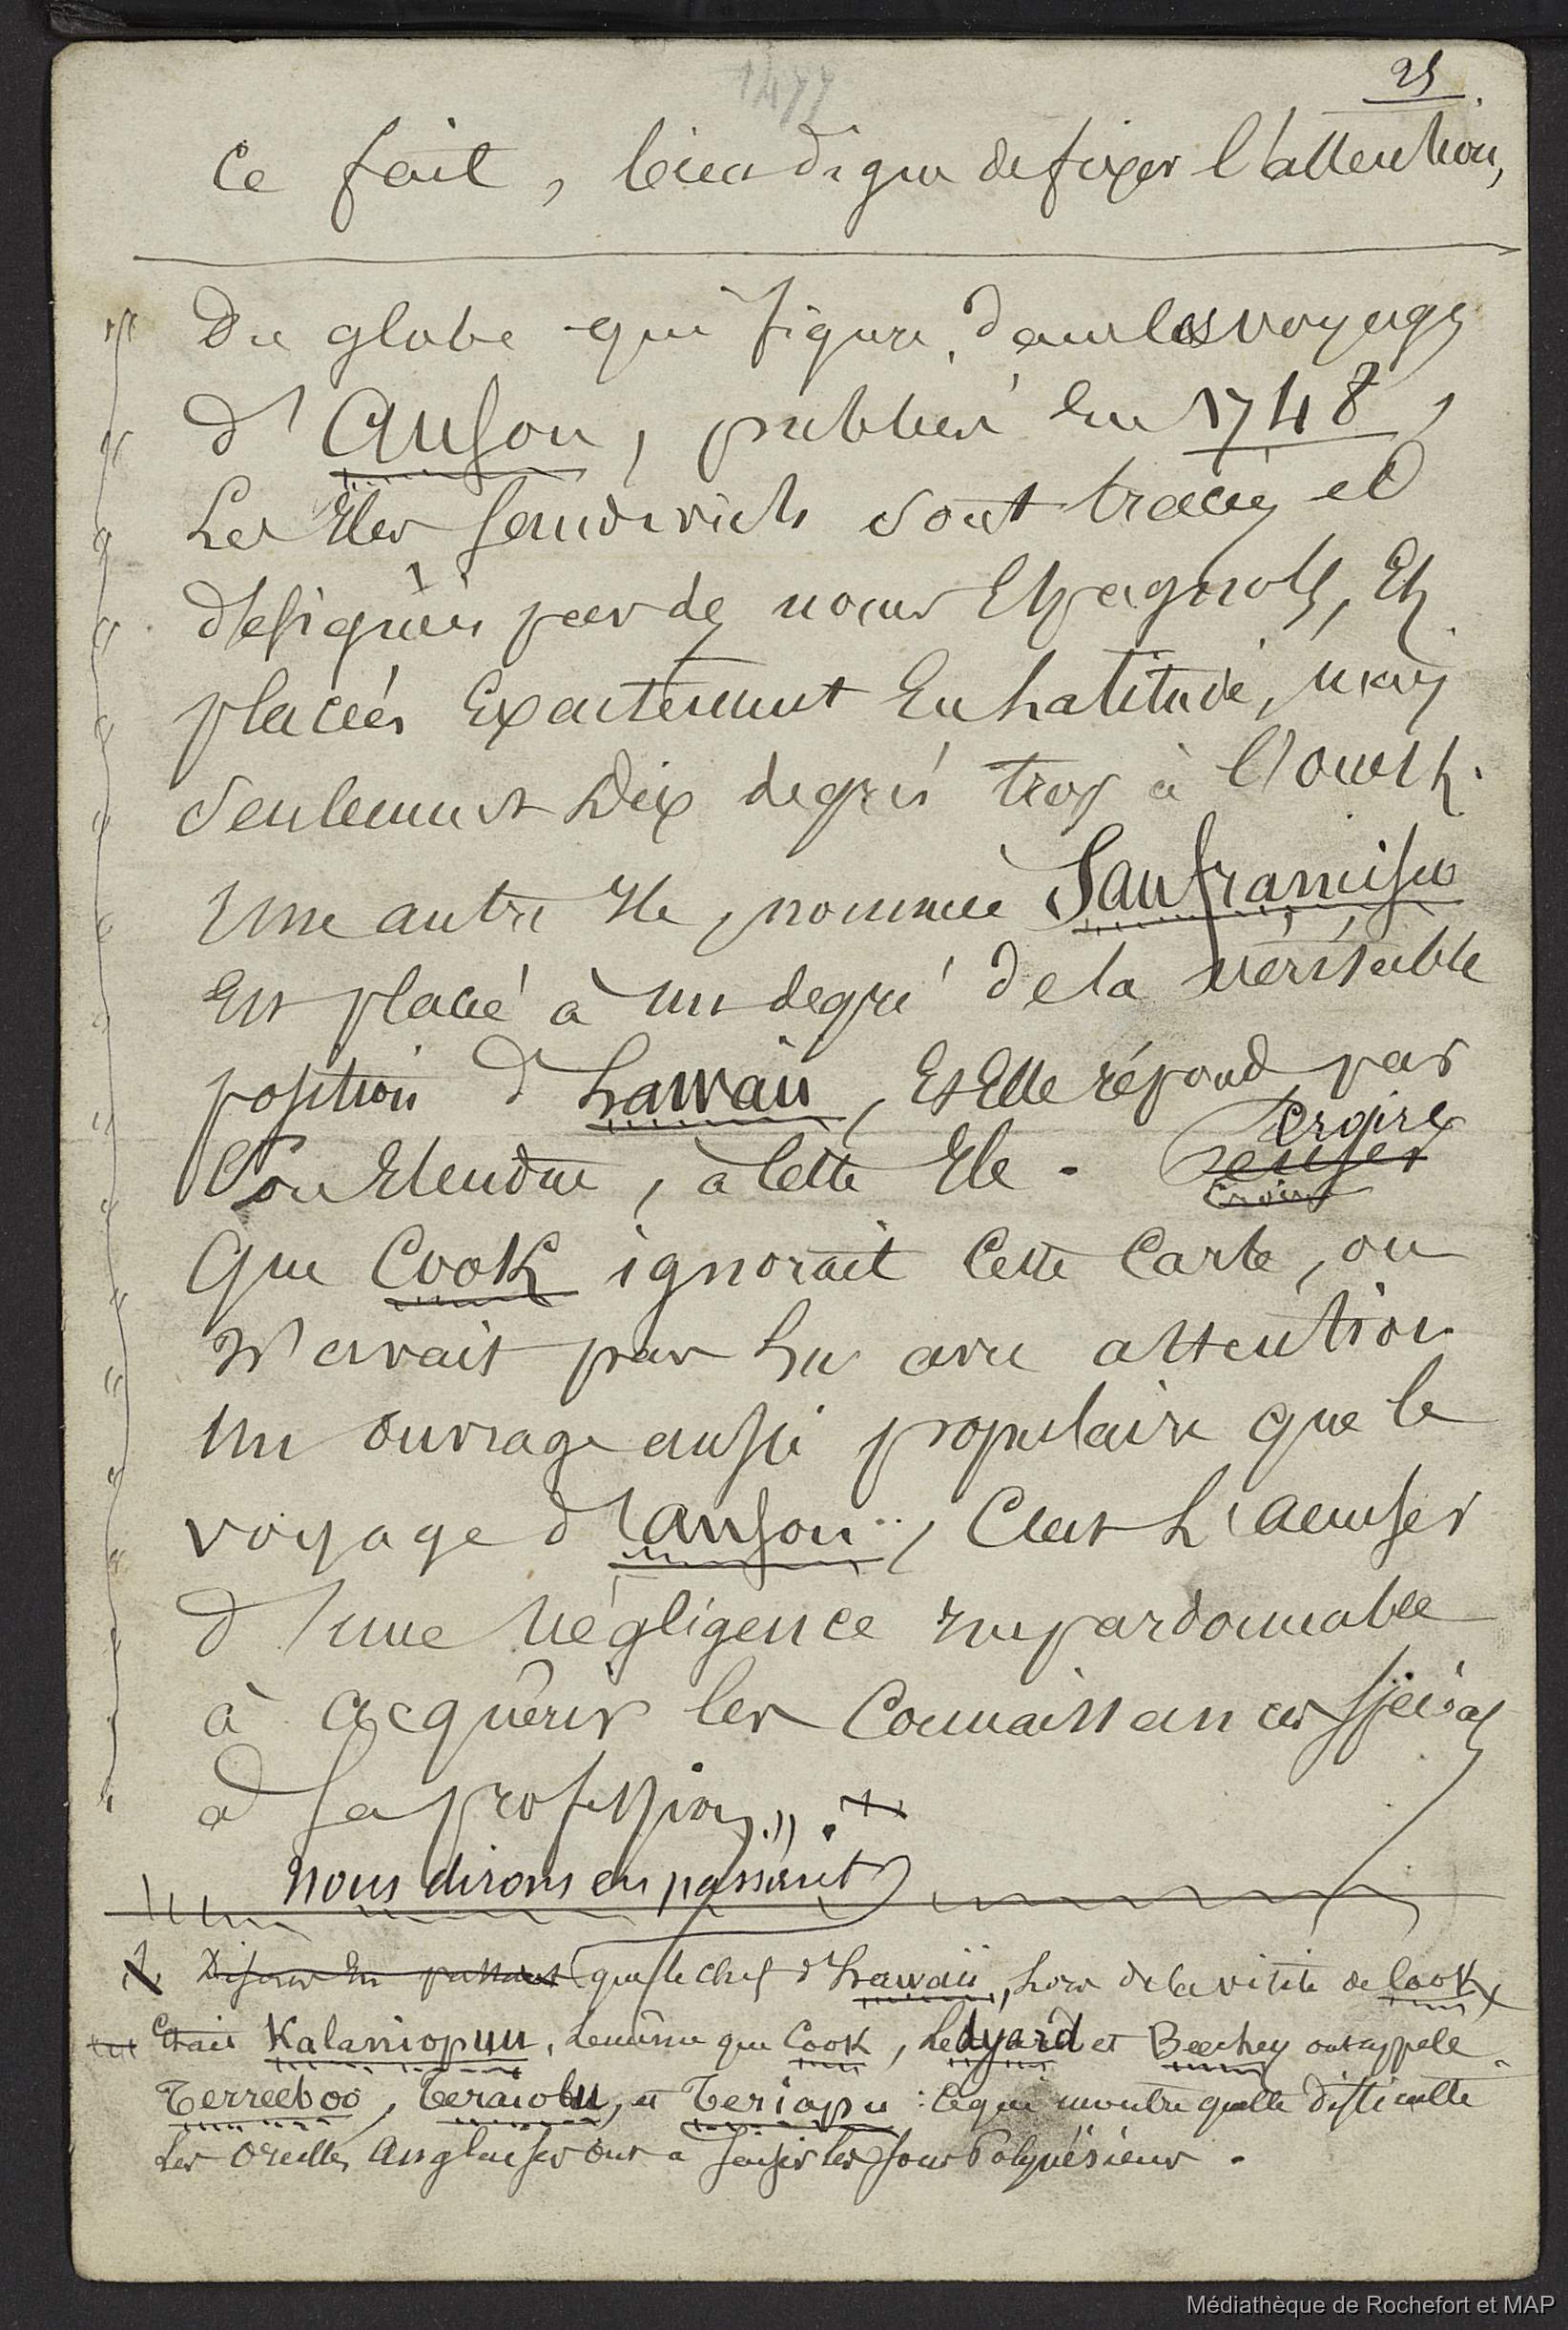 1477
25
Ce fait, bien digne de fixer l'attention,
Du globe qui figure, dans les voyages
d'Anson, publiés En 1748,
Les Iles Sandwich sont tracées et
désignées par des noms Espagnols, Et
placées Exactement En Latitude, mais
Seulement Dix degrés trop à l'ouest.
Une autre Ile, nommée San francisco
Est placée à un degré de la véritable
position d'hawaii, Et Elle répond par
Son Etendue, à Cette Ile. croire
Penser
Croire
Que Cook ignorait Cette Carte, ou
N'avait pas Lu avec attention
Un ouvrage aussi populaire que le
voyage d'anson, C'est L'accuser
d'une Négligence impardonnable
à acquérir les Connaissances Spéciales
à Sa profession,".
Nous dirons en passant
Disons En passant que le chef d'hawaii, Lors de la visite de Cook
Etait Kalaniopuu, Le même que Cook, Ledyard et Beechey ont appelé
Terreeboo, Teraiobu, et Teriapu : Ce qui montre quelle difficulté
Les Oreilles Anglaises ont a Saisir les Sons Polynésiens.
Médiathèque de Rochefort et MAP